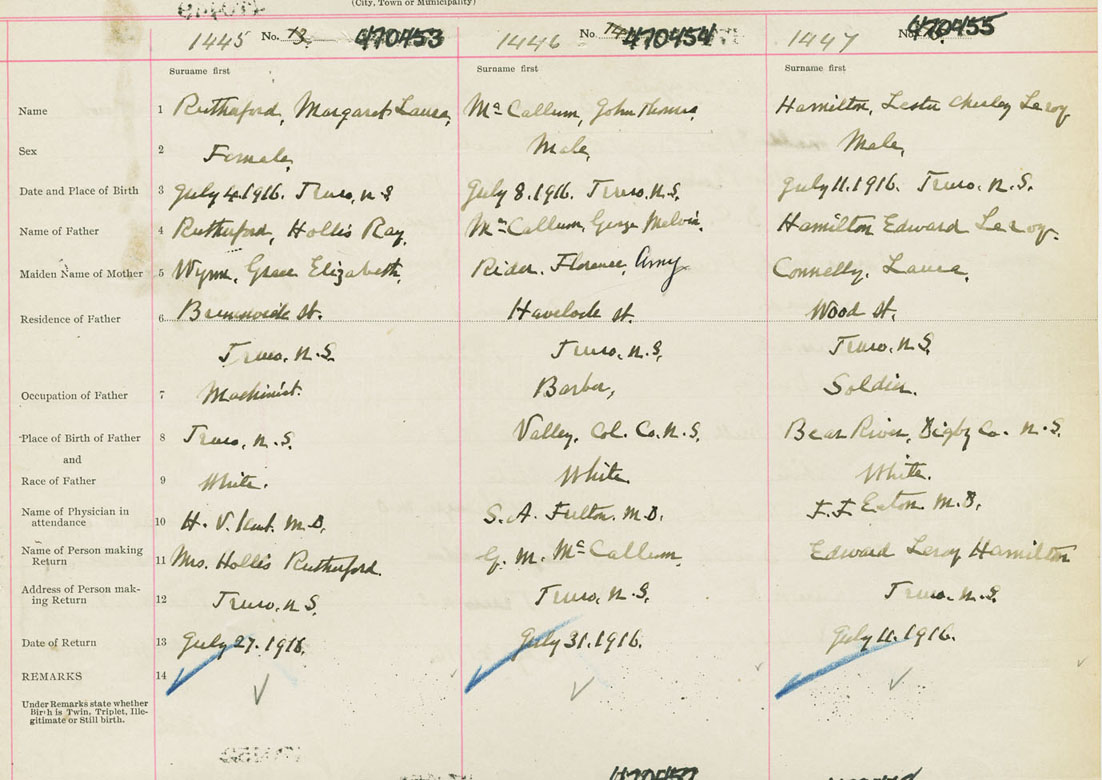 (City, Town or Municipality)
1445 No. 13. 470453 1446 No 14 470454 1447 No 470455
Surname first Surname first Surname first
Name 1 Rutherford, Margaret Laura, McCallum, John Thomas, Hamilton, Lester Chesley Leroy
Sex 2 Female, Male, Male,
Date and Place of Birth 3 July 4.1916. Truro, N.S July 8.1916. Truro, N.S. July 11.1916. Truro, N.S.
Name of Father 4 Rutherford, Hollis Ray, McCallum, George Melvin. Hamilton Edward Leroy.
Maiden Name of Mother 5 Wynn, Grace Elizabeth, Rider. Florence, Amy Connelly, Laura,
Residence of Father 6 Brunswick St. Havelock St. Wood St.
Truro, N.S. Truro, N.S. Truro, N.S.
Occupation of Father 7 Machinist. Barber, Soldier.
Place of Birth of Father 8 Truro, N.S. Valley, Col. Co. N.S. Bear River, Digby Co. N.S.
and
Race of Father 9 White. White. White.
Name of Physician in
attendance 10 H. V. Kent. M.D. S. A. Fulton. M.D. F. F. Eaton M.D.
Name of Person making
Return 11 Mrs. Hollis Rutherford. G. M. McCallum, Edward Leroy Hamilton
Address of Person mak-
ing Return 12 Truro, N.S. Truro, N.S. Truro, N.S.
Date of Return 13 July 27. 1916. July 31.1916. July 11.1916.
REMARKS 14
Under Remarks state whether
Birth is Twin, Triplet, Ille-
gitimate or Still birth.